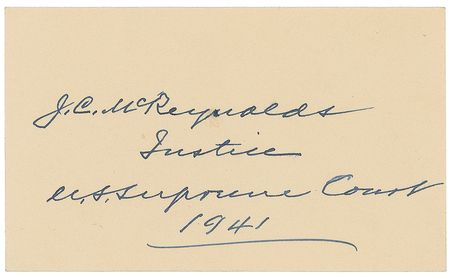 J. C. McReynolds
Justice
U.S. Supreme Court
1941